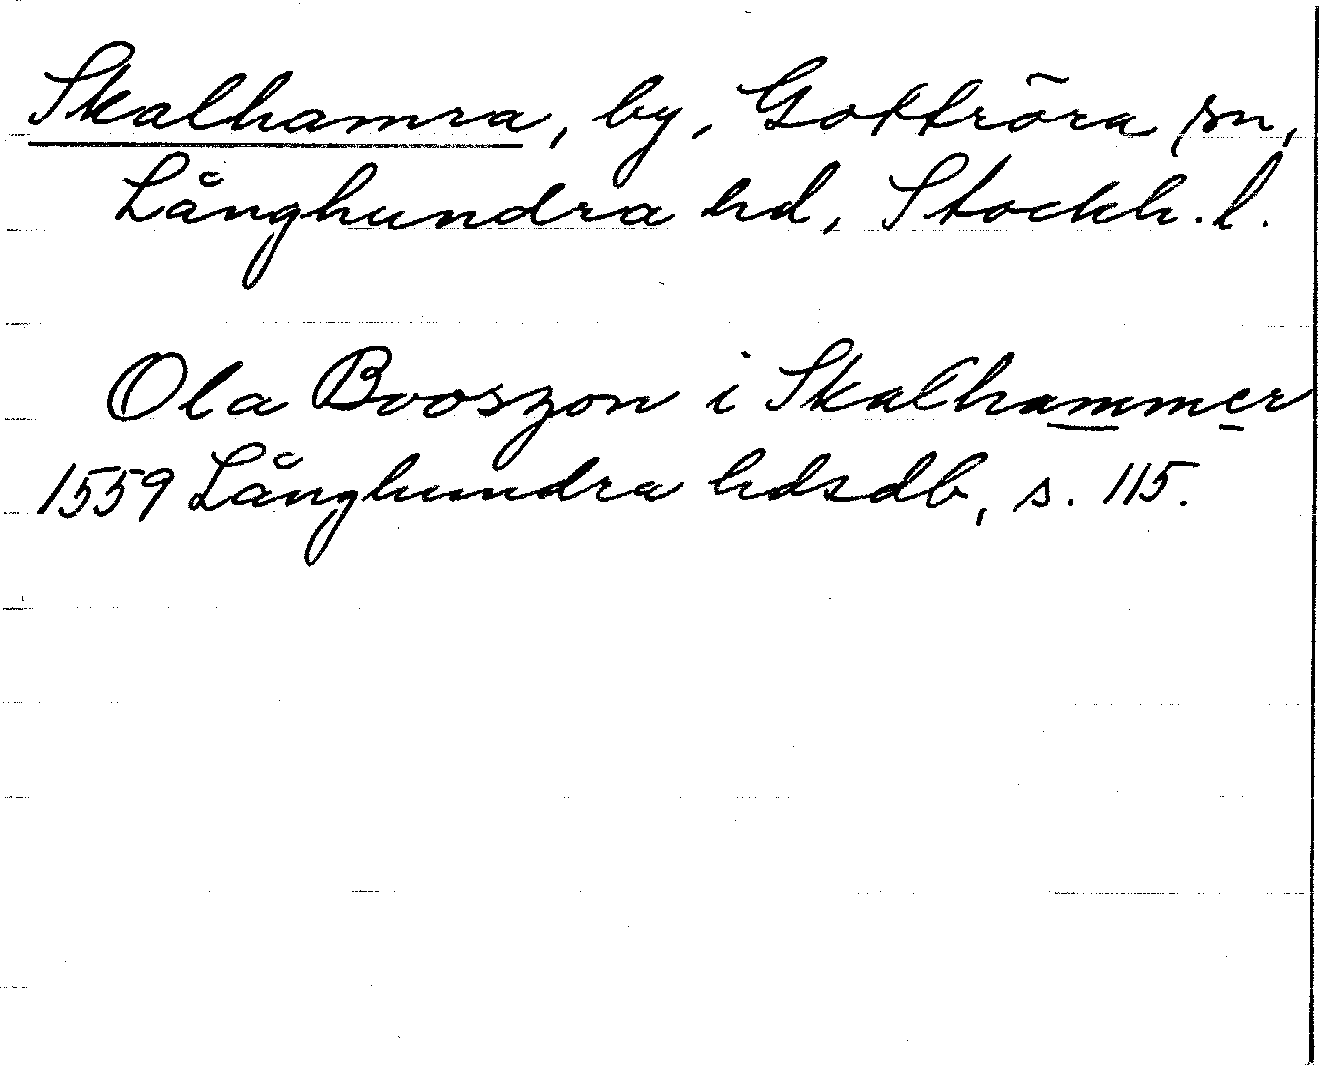 Skalhamra, by, Gottröra sn,
Långhundra hd, Stockh. l.
Ola Booszon i Skalhammer
1559 Långhundra hdsdb, s. 115.